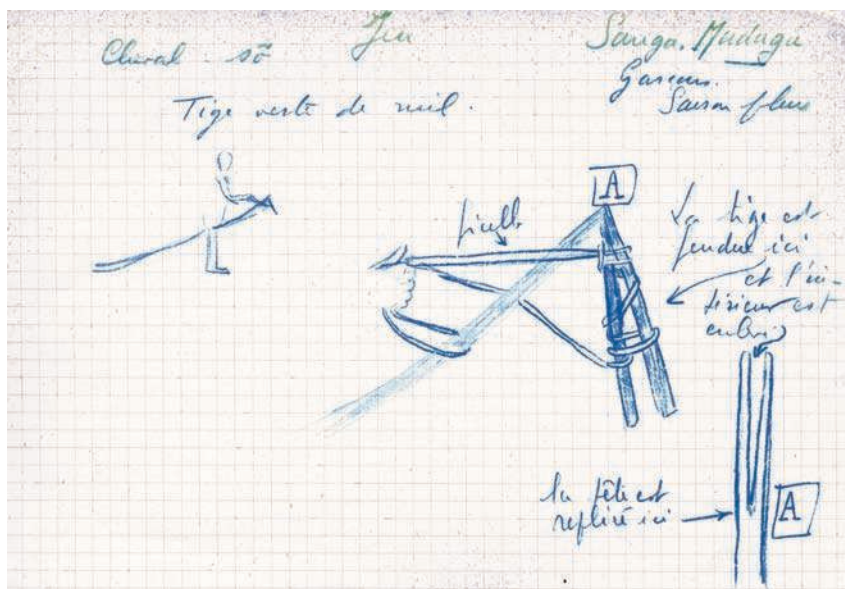 Jeu
Cheval - sõ
Sanga. Madaga
Garçons.
Saison pluies
Tige verte de mil.
A
ficelle
La tige est
fendue ici
et l'in-
térieur est
enlevé
la tête est
repliée ici
A